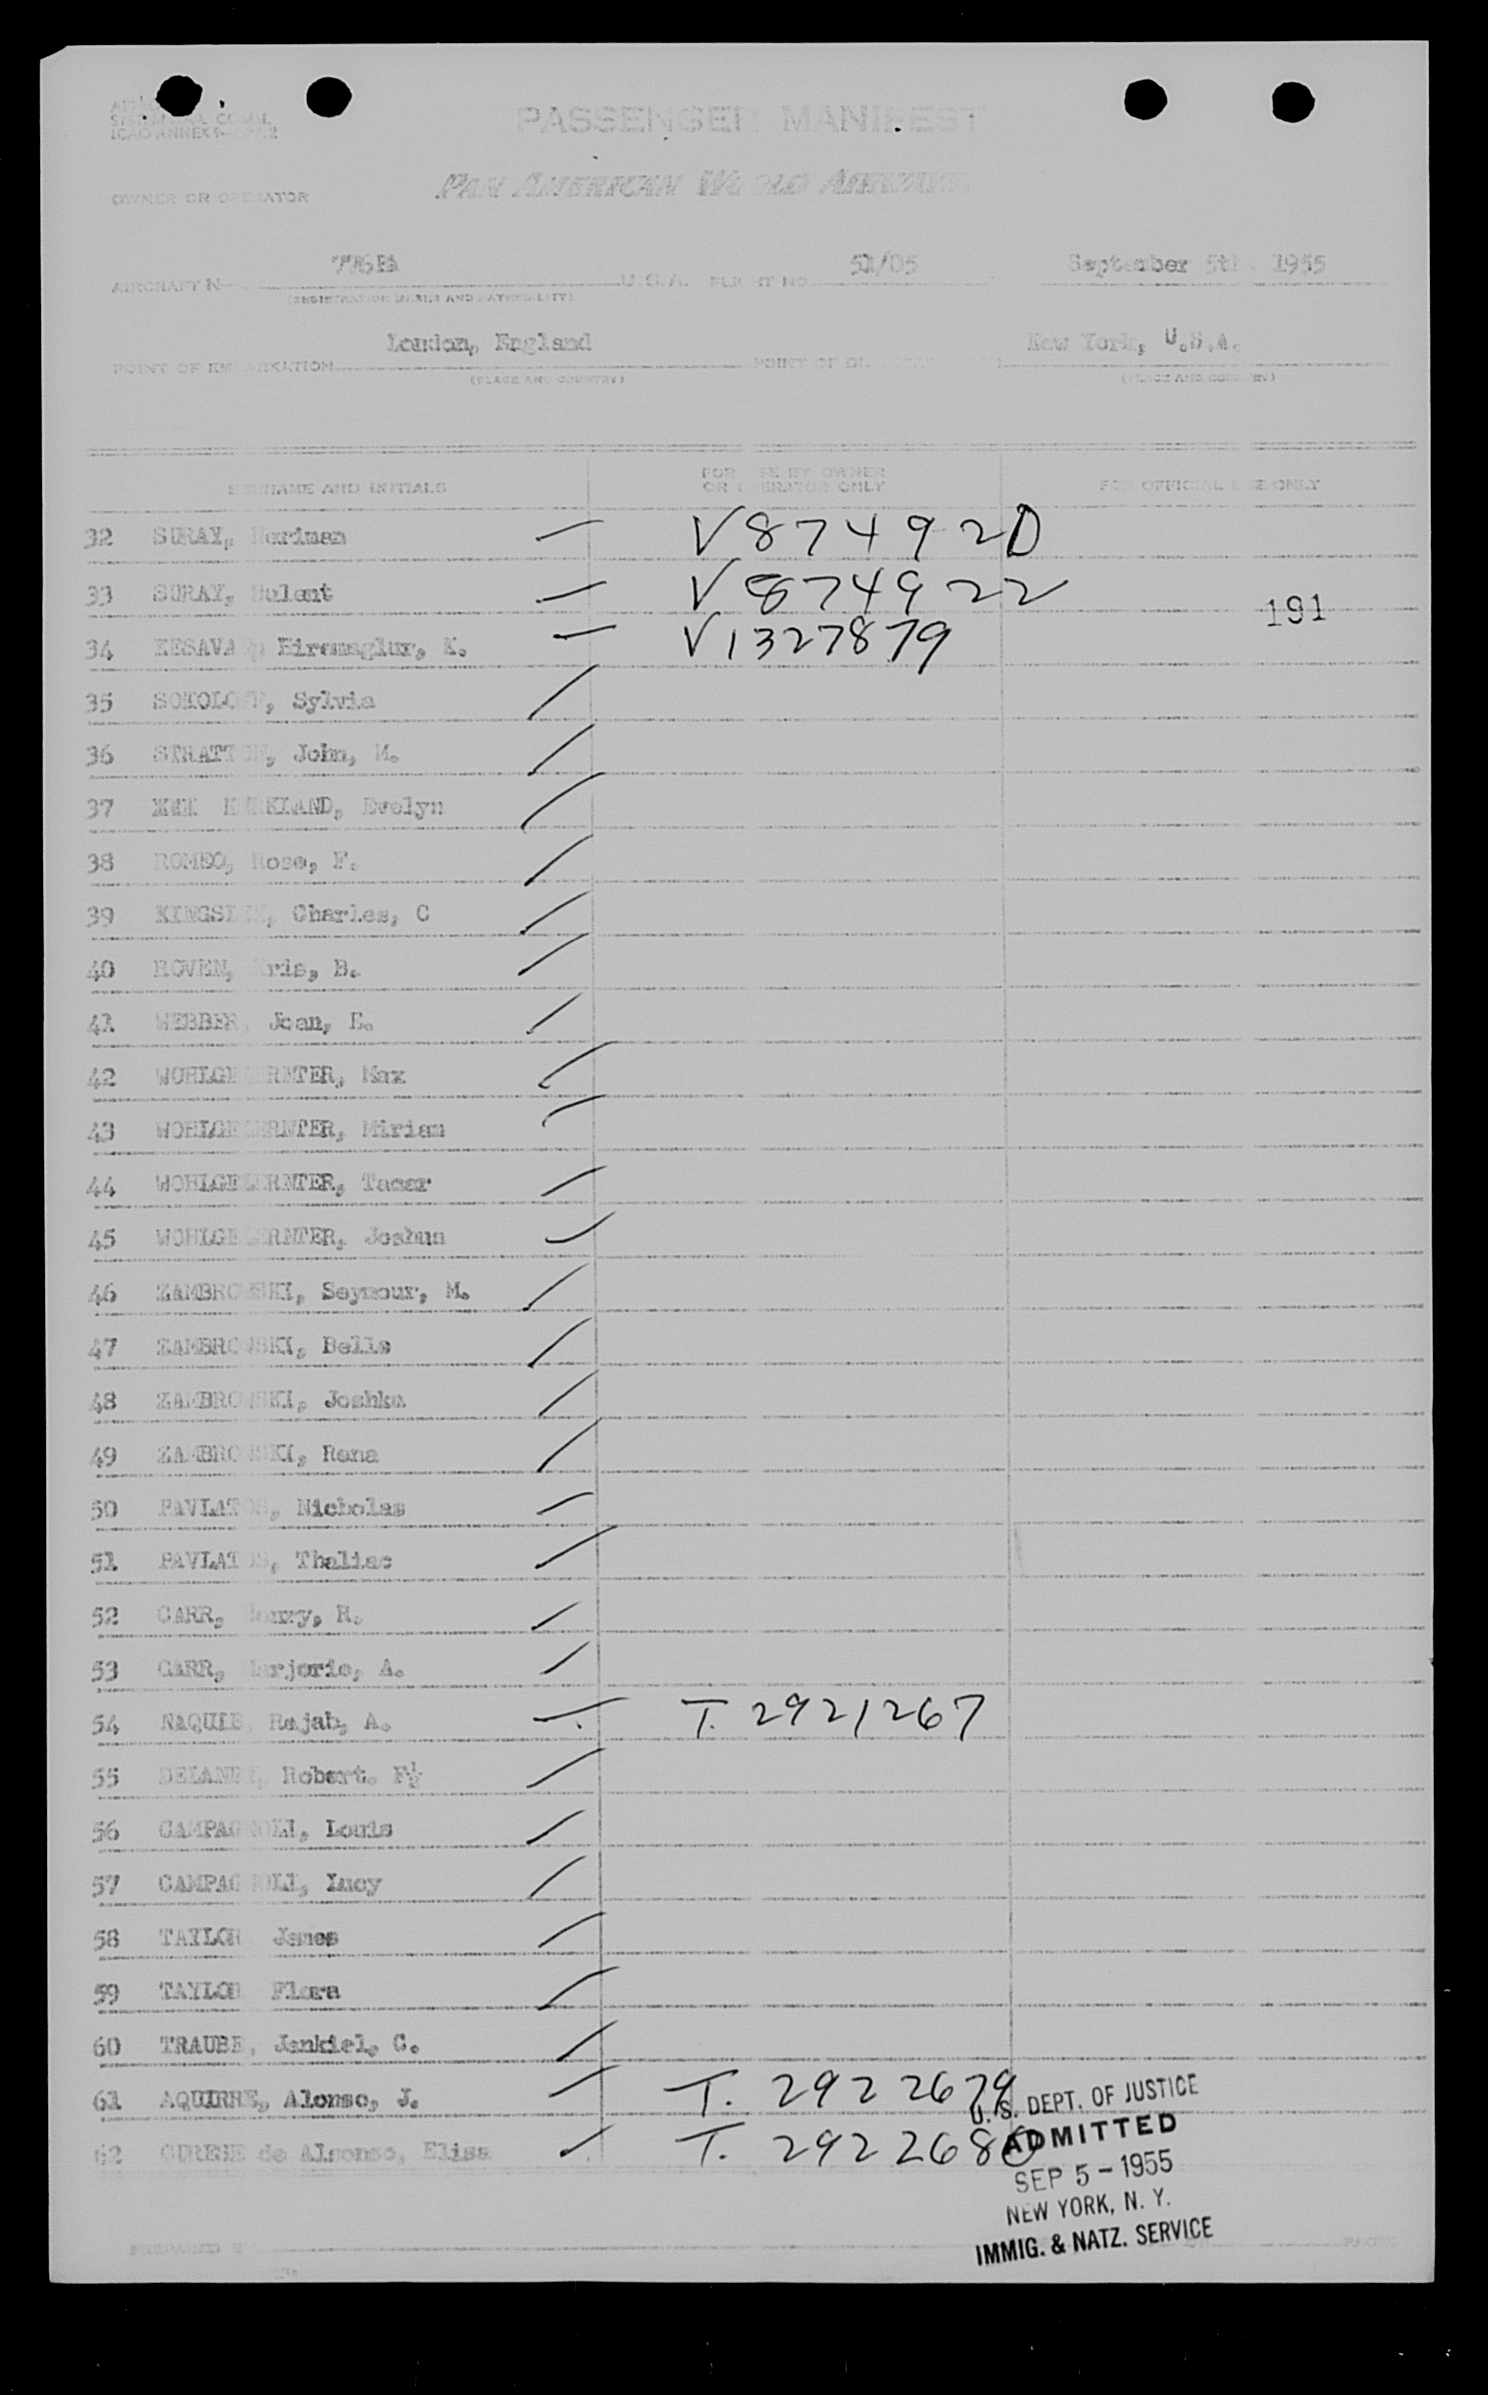 PASSENGER MANIFEST
PAN AMERICAN WORLD AIRWAYS
OWNER OR OPERATOR
AIRCRAFT N U.S.A. FLIGHT NO. 51/05 September 5th. 1955
(REGISTRATION MARKS AND NATIONALITY)
POINT OF EMBARKATION London, England POINT OF New York, U.S.A.
(PLACE AND COUNTRY) (PLACE AND COUNTRY)
SURNAME AND INITIALS FOR USE BY OWNER OR OPERATOR ONLY FOR OFFICIAL USE ONLY
32 SURAY, Neriman — V874920
33 SURAY, Bulent — V874922
191
34 KESAVA K. — V1327879
35 Sylvia
36 STRATTON, John, M.
37 Evelyn
38 ROMEO, Rose, F.
39 Charles, C
40 B.
41 WEBBER, Joan, E.
42 WOHLGELERNTER, Max
43 WOHLGELERNTER, Miriam
44 WOHLGELERNTER, Tamar
45 WOHLGELERNTER, Joshua
46 ZAMBROWSKI, Seymour, M.
47 ZAMBROWSKI, Bella
48 ZAMBROWSKI, Joshka
49 ZAMBROWSKI, Rena
50 PAVLATOS, Nicholas
51 PAVLATOS, Thaliac
52 CARR, Henry, R.
53 CARR, Marjorie, A.
54 NAQUIB, Rajab, A. — T. 2921267
55 Robert. F.
56 CAMPAGNOLI, Louis
57 CAMPAGNOLI, Lucy
58 TAYLOR James
59 TAYLOR Flora
60 TRAUBE, Jankiel, C.
61 AQUIRRE, Alonso, J. — T. 2922679
62 de Alsonso, Elisa T. 2922680
U. S. DEPT. OF JUSTICE
ADMITTED
SEP 5 - 1955
NEW YORK, N. Y.
IMMIG. & NATZ. SERVICE
PREPARED BY PAGE